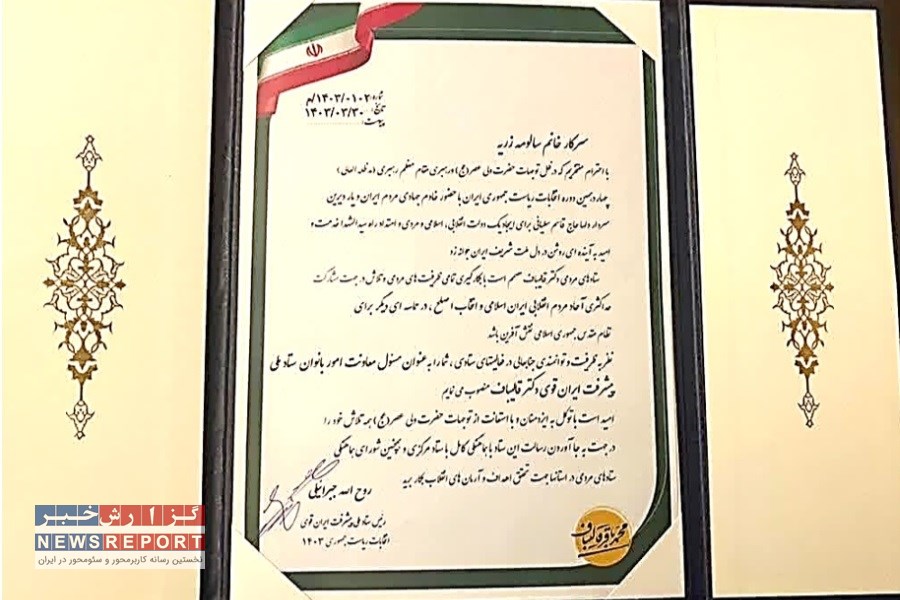 شماره: ۱۴۰۳/۰۱۰۲/م
تاریخ: ۱۴۰۳/۰۳/۳۰
پیوست:
سرکار خانم سالومه زریه
با احترام مفتخریم که در ظل توجهات حضرت ولی عصر(عج) و رهبری مقام معظم رهبری (مد ظله العالی)
چهاردهمین دوره انتخابات ریاست جمهوری ایران با حضور خادم جهادی مردم ایران و یار دیرین
سردار دلها حاج قاسم سلیمانی برای ایجاد یک دولت انقلابی، اسلامی و مردمی و امتداد راه سید الشهدا خدمت و
امید به آینده ای روشن در دل ملت شریف ایران جوانه زد
ستادهای مردمی دکتر قالیباف مصمم است با بکارگیری تمامی ظرفیت های مردمی و تلاش در جهت مشارکت
حداکثری آحاد مردم انقلابی ایران اسلامی و انتخاب اصلح، در حماسه ای دیگر برای
نظام مقدس جمهوری اسلامی نقش آفرین باشد
نظر به ظرفیت و توانمندی جنابعالی در فعالیتهای ستادی، شما را به عنوان مسئول معاونت امور بانوان ستاد ملی
پیشرفت ایران قوی دکتر قالیباف منصوب می نمایم
امید است با توکل به ایزد منان و با استعانت از توجهات حضرت ولی عصر(عج) همه تلاش خود را
در جهت به جا آوردن رسالت این ستاد با هماهنگی کامل با ستاد مرکزی و همچنین شورای هماهنگی
ستادهای مردمی در استانها جهت تحقق اهداف و آرمان های انقلاب بکار برید
روح الله جیرانیلی
رئیس ستاد ملی پیشرفت ایران قوی
انتخابات ریاست جمهوری ۱۴۰۳
محمدباقر قالیباف
گزارش خبر
NEWSREPORT
نخستین رسانه کاربرمحور و سئومحور در ایران